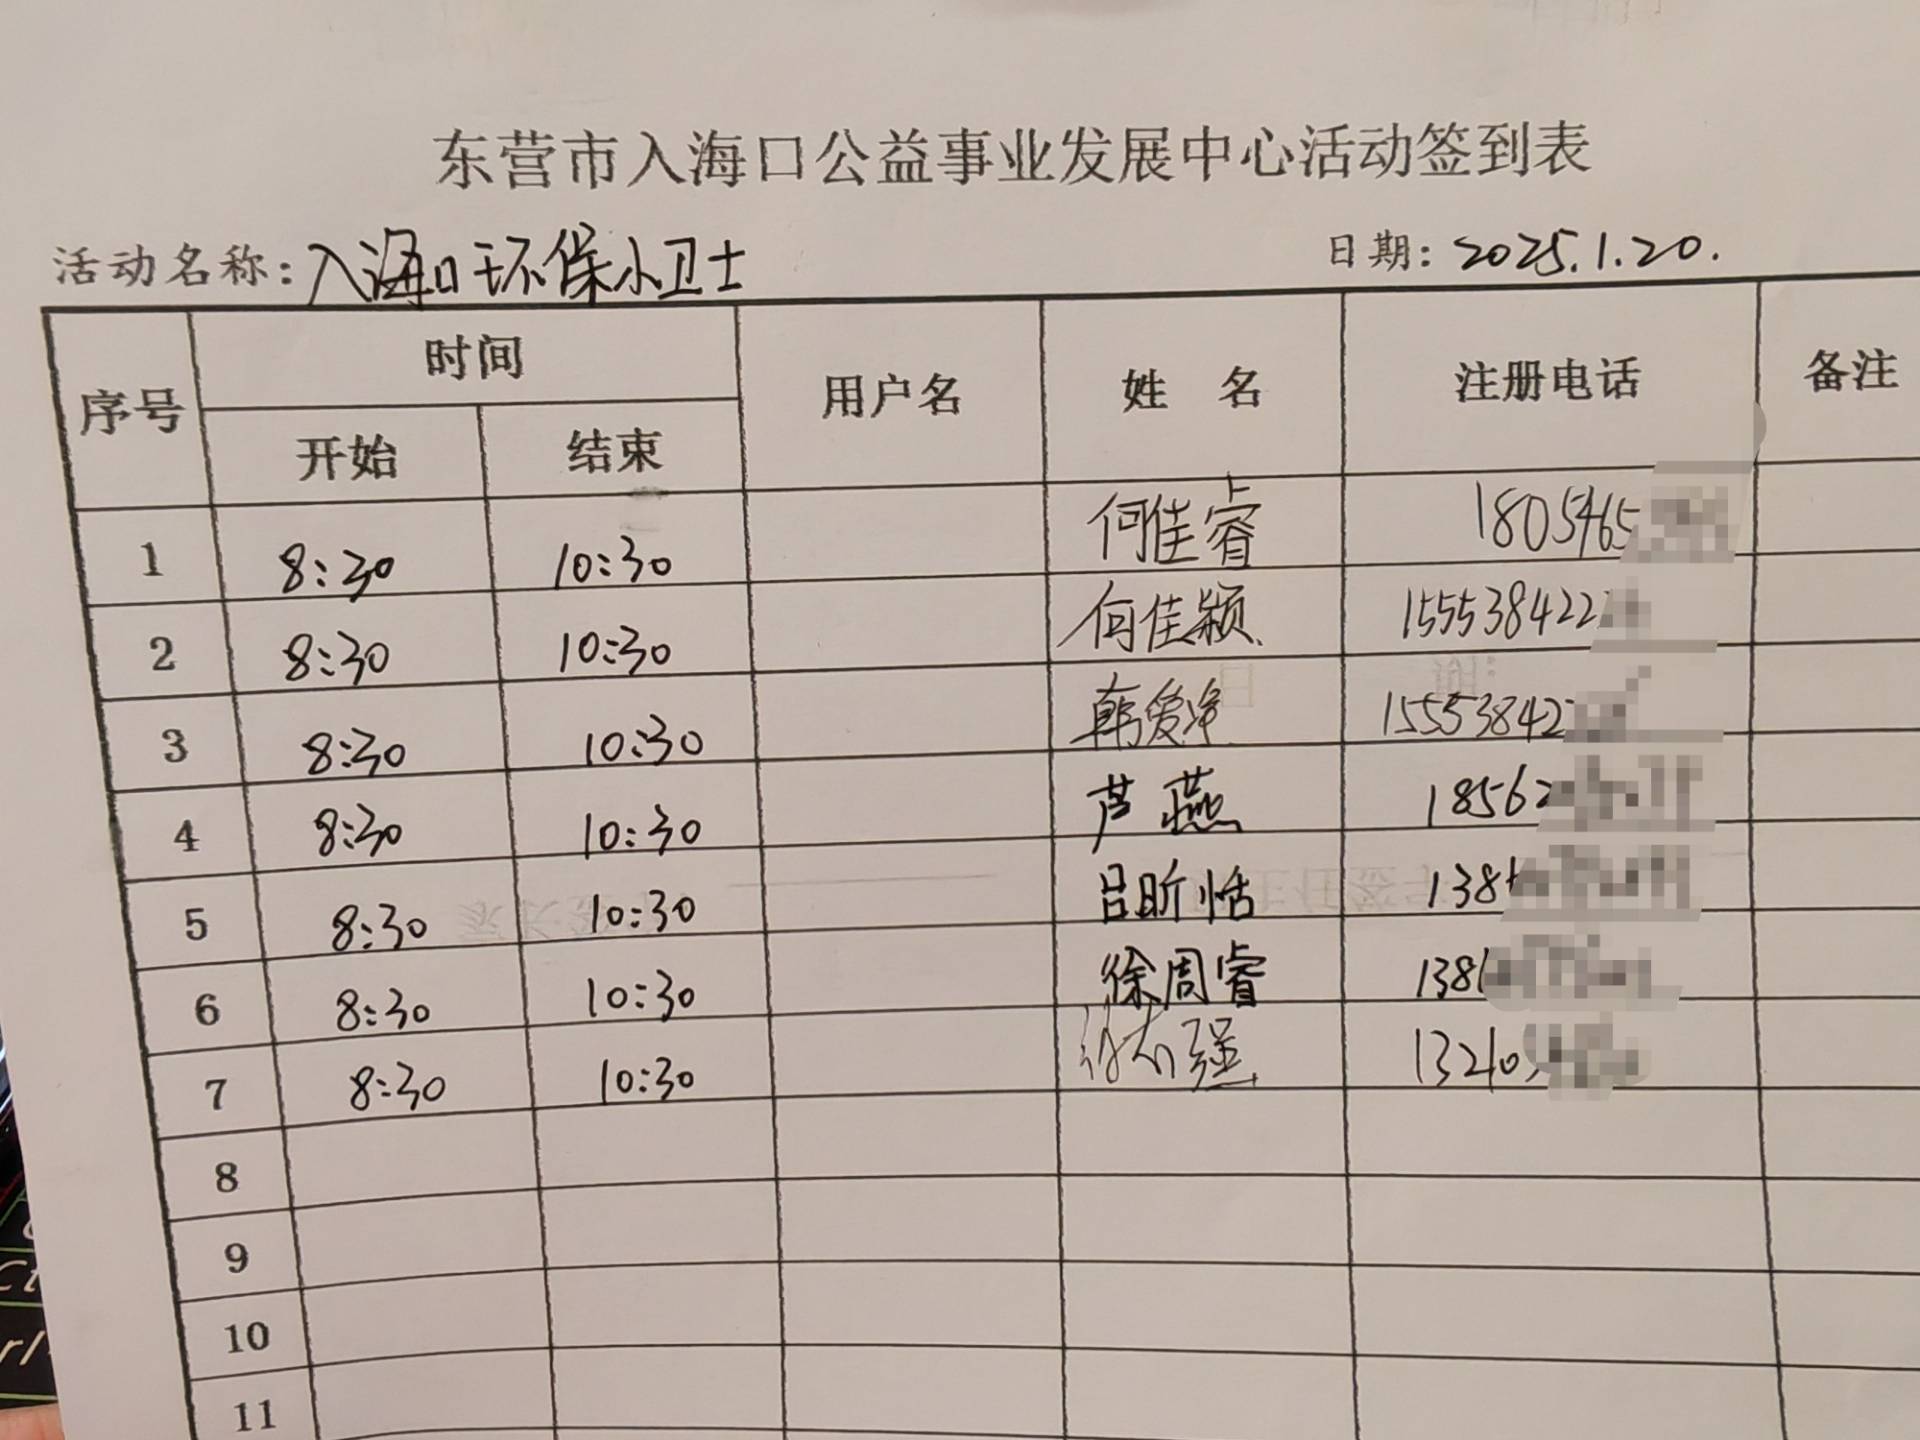 东营市入海口公益事业发展中心活动签到表
活动名称: 入海口环保小卫士 日期: 2025.1.20.
序号 时间 用户名 姓 名 注册电话 备注
开始 结束
1 8:30 10:30 何佳睿 1805465
2 8:30 10:30 何佳颖 155538422
3 8:30 10:30 韩爱净 15553842
4 8:30 10:30 芦燕 18562
5 8:30 10:30 吕昕恬 138
6 8:30 10:30 徐周睿 138
7 8:30 10:30 13210
8
9
10
11